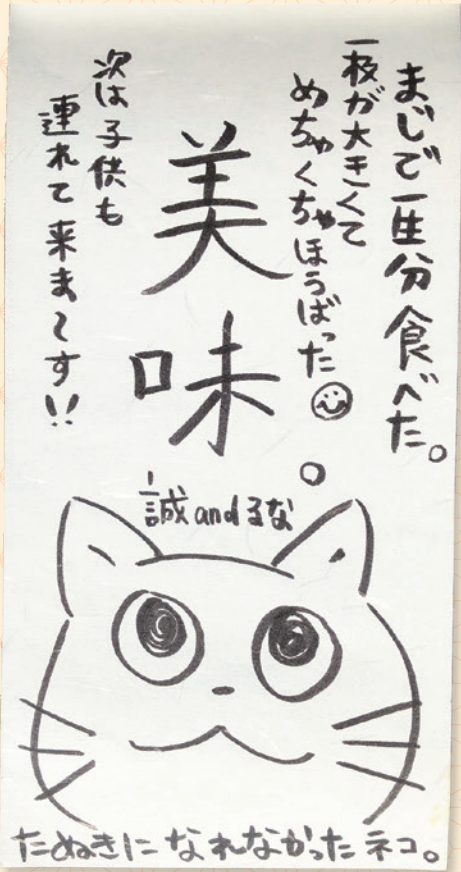 まじで一生分食べた。
一枚が大きくて
めちゃくちゃほうばった
美味。
次は子供も
連れて来ま〜す!!
誠andるな
たぬきになれなかったネコ。